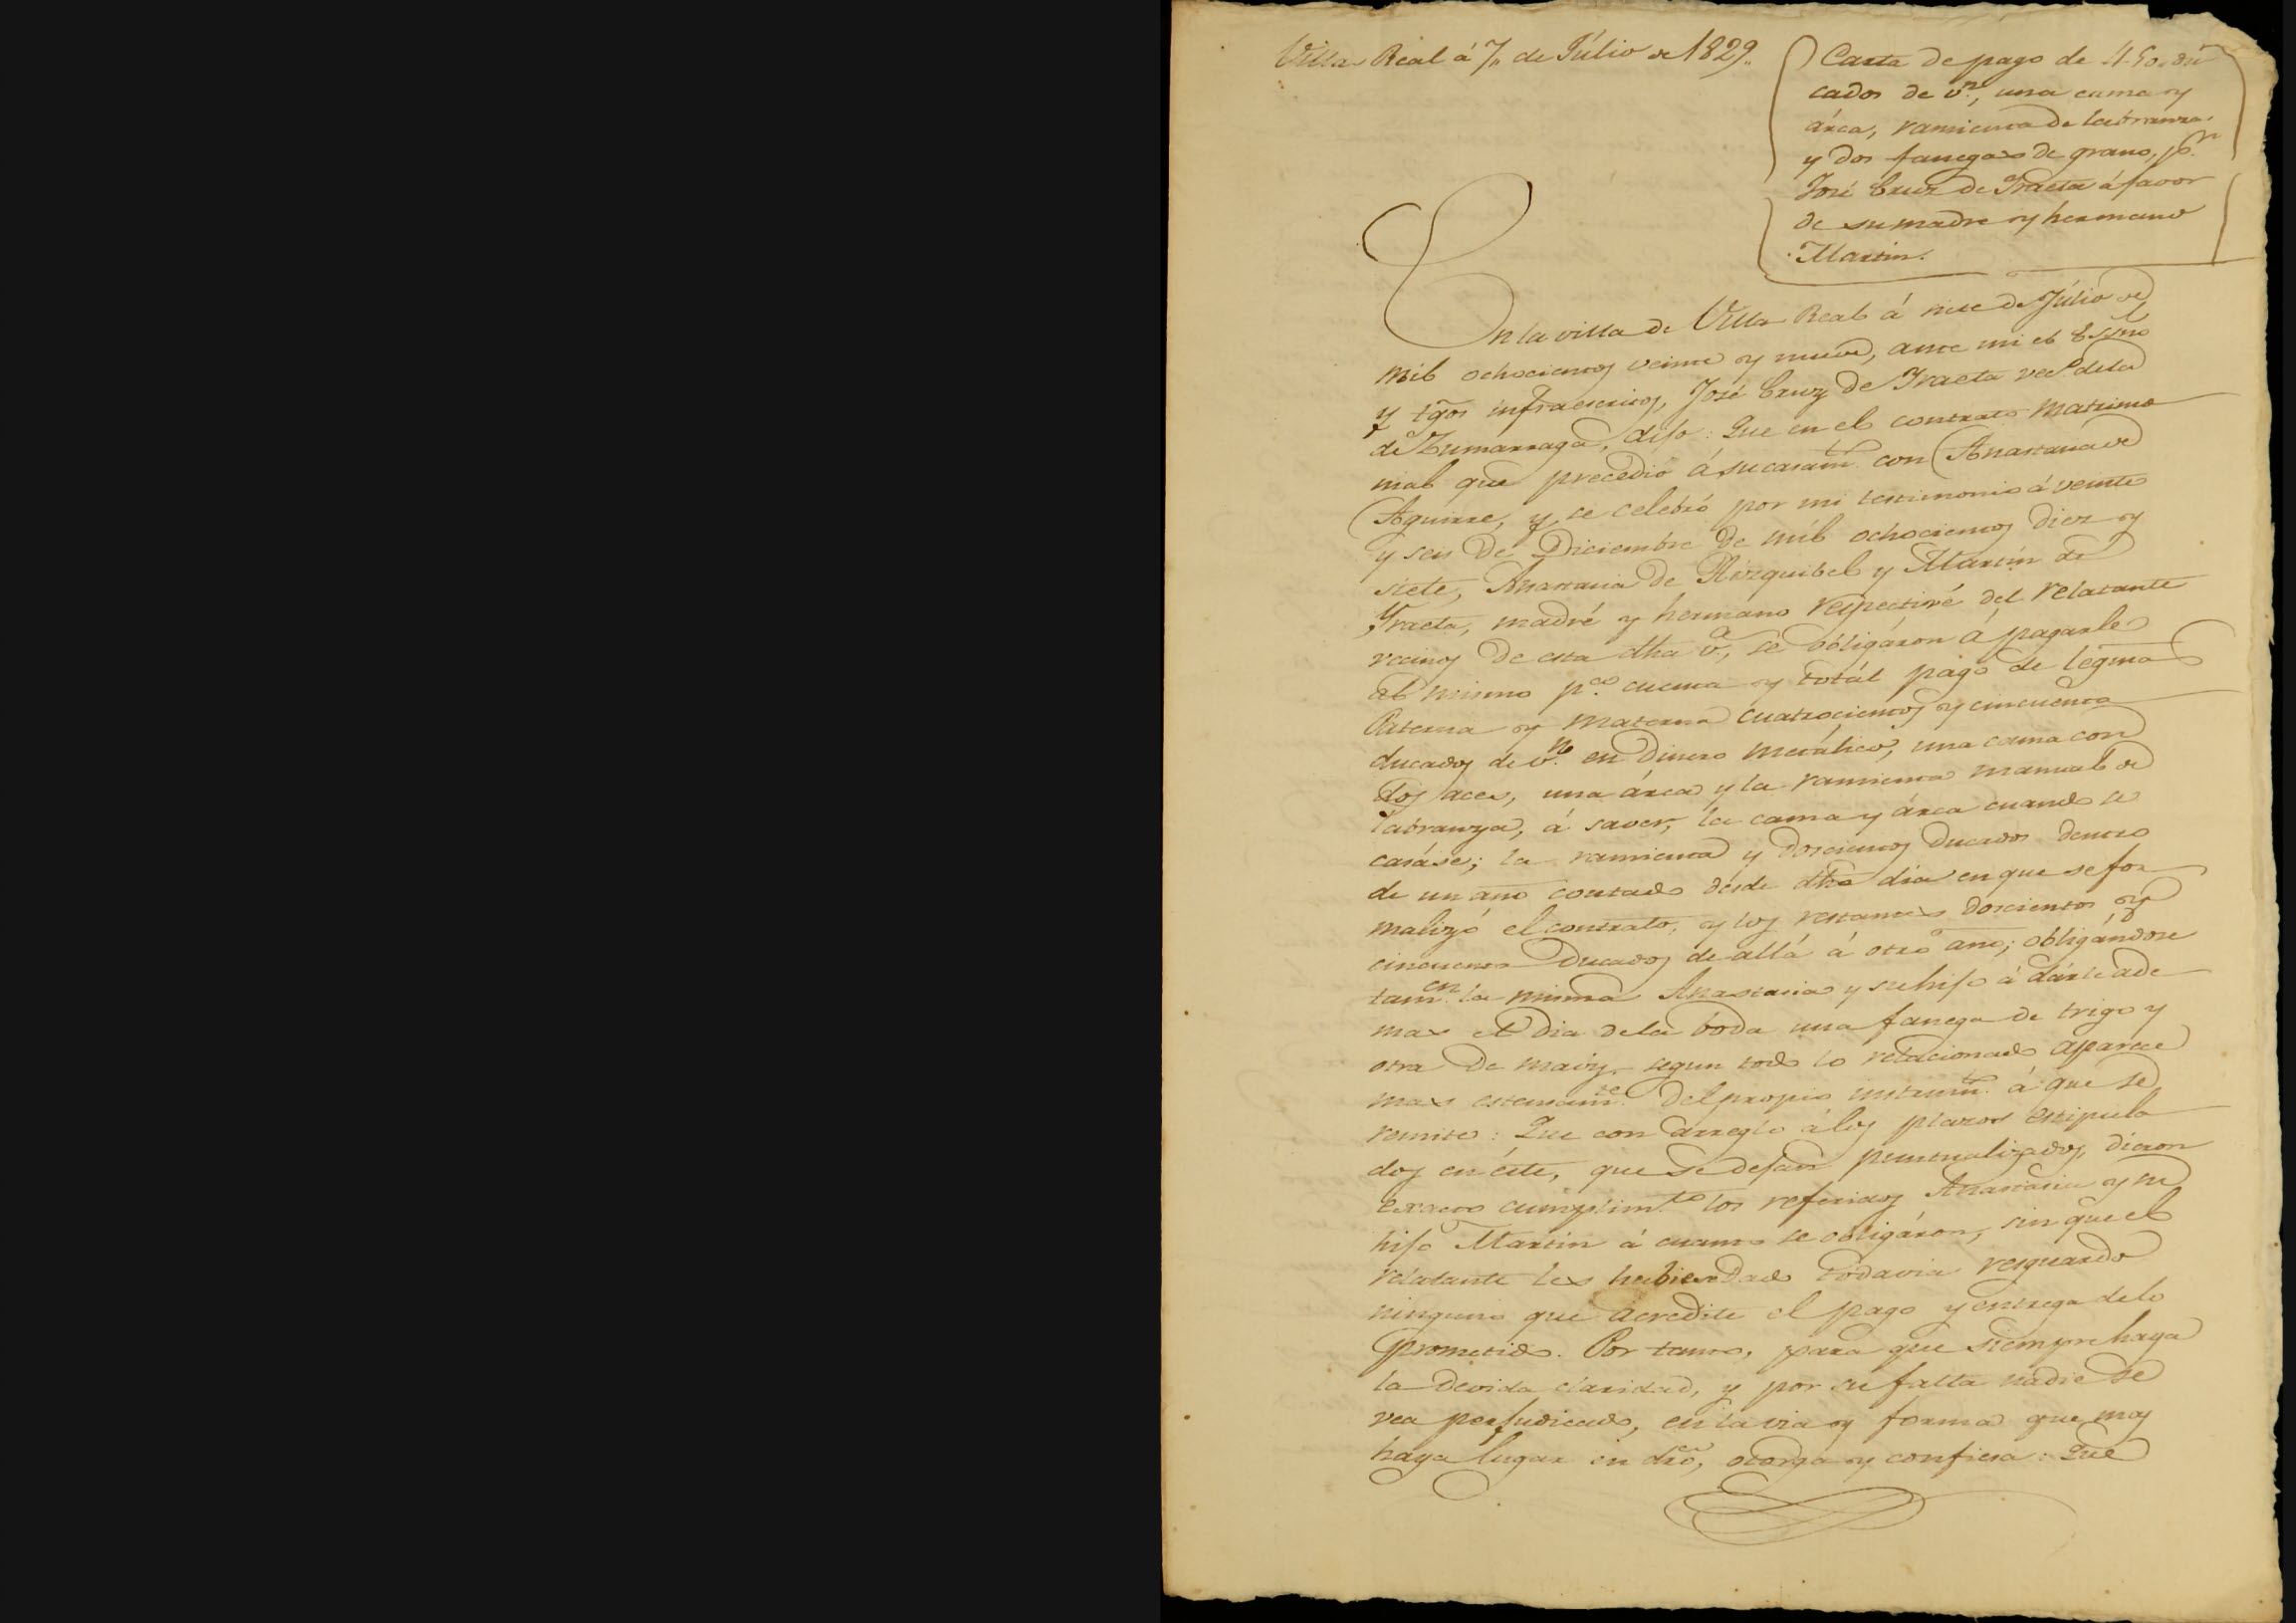 Villa Real á 7,, de Júlio de 1829.
Carta de pago de 450,, du
cados de v.n, una cama y
árca, ramienta de labranza,
y dos fanegas de grano, p.r
José Cruz de Yraeta á favor
de su madre y hermano
Martin.
En la villa de Villa Real á siete de Júlio de
mil ochocientos veinte y nueve, ante mi el Essno
y tgos infraescritos, José Cruz de Yraeta vec.o de la
de Zumarraga, dijo: Que en el contrato matrimo
nial que precedió á su casam.to con Anastasia de
Aguirre, y se celebró por mi testimonio á veinte
y seis de Diciembre de mil ochocientos diez y
siete, Anastasia de y Martin de
Yraeta, madre y hermano respectivé del relatante
vecinos de esta dha v.a, se obligáron á pagarle
al mismo p.a cuenta y totál pago de legma
Paterna y materna cuatrocientos y cincuenta
ducados de v.n en dinero metálico, una cama con
dos aces, una árca y la ramienta manual de
labranza, á saver, la cama y árca cuando se
casáse; la ramienta y doscientos ducados dentro
de un año contado desde dho dia en que se for
malizó el contrato, y los restantes doscientos y
cincuenta ducados de allá á otro año; obligándose
tam.en la misma Anastasia y su hijo á dárle ade
mas el dia de la boda una fanega de trigo y
otra de maiz, segun todo lo relacionado aparece
mas estensam.te del propio instrum.to á que se
remite: Que con arreglo á los plazos estipula
dos en éste, que se dejan puntualizados, diéron
exacto cumplim.to los referidos Anastasia y su
hijo Martin á cuanto se obligáron, sin que el
relatante les hubiese dado todavia resguardo
ninguno que acredite el pago y entrega de lo
prometido. Por tanto, para que siempre haya
la devida claridad, y por su falta nadie se
vea perjudicado, en la via y forma que mas
haya lugar en dro, otorga y confiesa: Que